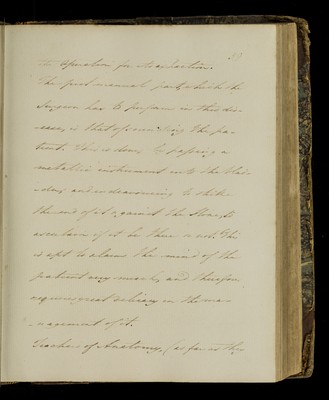 the operation for its extraction.
The first manual part which the
Surgeon has to perform in this dis-
-ease, is that of sounding the pa-
tient. This is done by passing a
metallic instrument into the blad-
-der, and endeavouring to strike
the end of it against the Stone, to
ascertain if it be there or not. This
is apt to alarm the mind of the
patient very much, and therefore
requires great delicacy in the man-
-agement of it.
Teachers of Anatomy, (as far as they